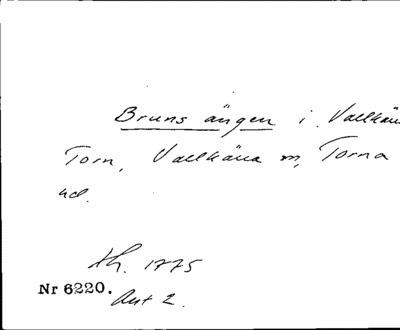 Bruns ängen i Vallkär
Torn, Vallkärra m, Torna
hd.
Ah. 1775
Nr 6220.
Akt 2.